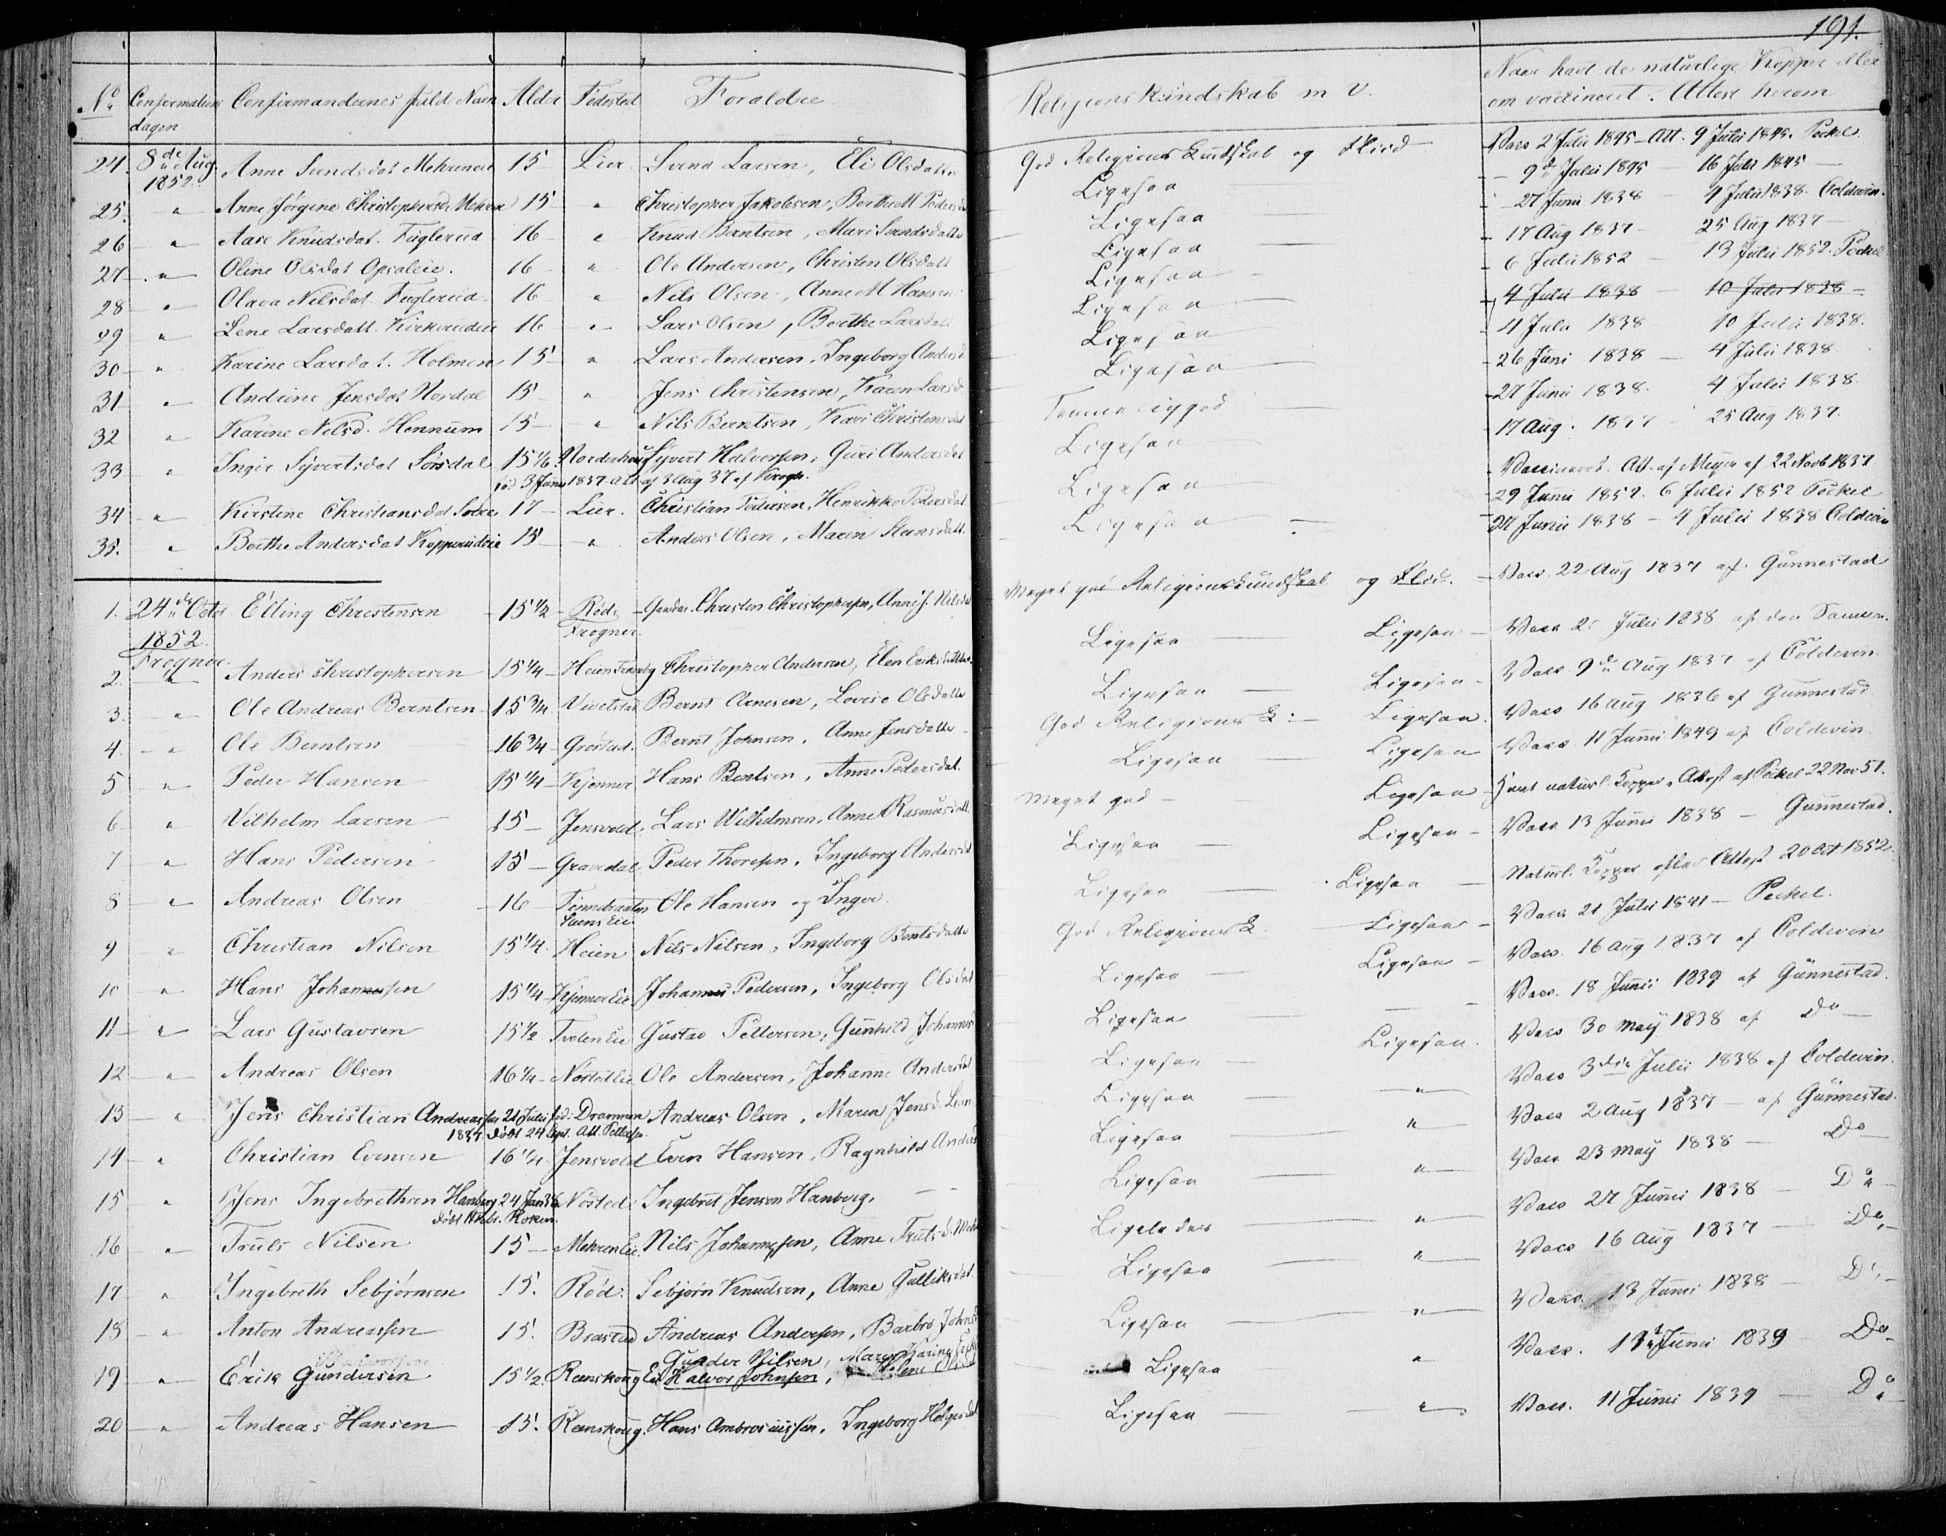 191.
No Confirmations dagen Confirmandernes fuld Navn Alder Fødested Forældre Religions Kundskab m. v. Naar havt de naturlige Kopper eller om vaccineret. Attest herom
24. 8de Aug. 1852. Anne 15 Lier Larsen, Eli Olsdatter God Religions Kundskab og Flid Vacc 2 Julii 1845 Att. 9 Julii 1845. Peckel
25. " Anne Jørgine 15 " Christopher Jakobsen, Berthe M Pedersd Ligesaa 9de Julii 1845 16 Julii 1845
26 " Aase Knudsdat. Fuglerud 16 " Knud Berntsen, Mari Ligesaa 27 Junii 1838 4 Julii 1838. Coldevin.
27 " Oline Olsdat Opsaleie. 16 " Ole Andersen, Christen Olsdatt Ligesaa 17 Aug 1837 25 Aug 1837
28 " Olava Nilsdat. Fuglerud 16 " Nils Olsen, Anne M Hansen Ligesaa 6 Julii 1852 13 Julii 1852. Peckel
29 " Lene Larsdatt. 16 " Lars Olsen, Berthe Larsdatt Ligesaa 4 Julii 1838 10 Julii 1838
30 " Karine Larsdat. Holmen 15 " Lars Andersen, Ingeborg Andersd Ligesaa 11 Julii 1838 10 Julii 1838.
31 " Andrine Jensdat Nordal 15 " Jens Christensen, Karen Larsd Ligesaa 26 Juni 1838 4 Julii 1838
32 " Karine Nilsd. Hennum 15 " Nils Berntsen, Kari Christensdat Temmelig god 27 Junii 1838. 4 Julii 1838
33 " Inger Syvertsdat Sørsdal 15 Norderhoug Syvert Halvorsen, Guri Andersdat Ligesaa 17 Aug. 25 Aug 1837.
fød 3 Juni 1837. Att af 3 Aug 37 af Krogh.
Vaccineret. Att. af Meyer af 22 Novb 1837
34 " Kirstine Christiansdat 17 Lier. Christian Pedersen, Henrikke Pedersdat Ligesaa 29 Junii 1852. 6 Julii 1852 Peckel
35. " Berthe Andersdat 15 " Anders Olsen, Maren Ligesaa 27 Junii 1838 4 Julii 1838 Coldevin
1. 24de Octr 1852. Frogner Elling Christensen 15 1/2 Rød Frogner. Christen Christophersen, Anne J. Nilsdat Meget god Religionskundskab og Flid. Vacc. 22 Aug 1837 af. Gunnestad
2. " Anders Christophersen 15 1/4 Heien Christopher Andersen, Elen Eriksdatter Ligesaa Ligesaa Vacc Julii 1838 af den Samme.
3. " Ole Andreas Berntsen 15 3/4 Vivelstad Bernt Arnesen, Lovise Olsdatter Ligesaa Ligesaa Vacc. 9de Aug 1837 af Coldevin
4. " Ole Berntsen 16 3/4 Grøstad. Bernt Johnsen, Anne Jensdatter God Religions K: Ligesaa. Vacc 16 Aug 1836 af Gunnestad.
5 " Peder Hansen 15 1/4 Kjenner Hans Bentsen, Anne Pedersdat. Ligesaa Ligesaa Vacc 11 Junii 1849 af Coldevin.
6 " Vilhelm Larsen 15 Jensvold. Lars Wilhelmsen, Anne Rasmusdatt Meget god Ligesaa Havt naturl. Kopper, Attest af Peckel 22 Nov 51.
7 " Hans Pedersen 15 Gravdal Peder Thoresen, Ingeborg Andersdat Ligesaa Ligesaa Vacc 13 Junii 1838 Gunnestad.
8 " Andreas Olsen 16 Ole Hansen og Inger. Ligesaa Ligesaa Naturl. Kopper efter Attest 20 Oct 1852
9 " Christian Nilsen 15 1/4 Heien Nils Nilsen, Ingeborg Berntsdatter God Religions K. Ligesaa Vacc. 21 Julii 1841 Peckel.
10 " Hans Johannesen 15 1/4 Kjenner Eie Johannes Pedersen, Ingeborg Olsdat Ligesaa Ligesaa Vacc. 16 Aug 1837 af Coldevin
11 " Lars Gustavsen 15 1/2 Tveten Eie Gustav Pettersen, Gunhild Johannes Ligesaa Vacc. 18 Junii 1839 af Gunnestad.
12 " Andreas Olsen 16 1/4 Nøsted Eie Ole Andersen, Johanne Andersdat Ligesaa Ligesaa. Vacc 30 May 1838 af Do
13 " Jens Christian Andreassen 21 Julii fød: Drammen Andreas Olsen, Maren Jensd. Ligesaa " Vacc 3die Julii 1838 af Coldevin.
døbt 24 Sept. Att.
14 " Christian Evensen 16 1/4 Jensvold Even Hansen, Ragnhild Anders Ligesaa " Vacc 2 Aug 1837 af Gunnestad.
15 " Jens Ingebrethsen Hanberg 24 Jan 38 Nøsted Ingebret Jensen Hanberg. Ligesaa " Vacc 23 May 1838 Do
døbt
16 " Truls Nilsen 15 Mehren Eie. Nils Johannesen, Anne Ligeledes " Vacc 27 Junii 1838 Do
17 " Ingebreth Sebjørnsen 15. Rød. Sebjørn Knudsen, Anne Gulliksdat Ligesaa " Vacc 16 Aug 1837 Do
18 " Anton Andreassen 15. Brastad Andreas Andersen, Barbro Johnsd Ligesaa " Vacc. 13 Junii 1838 Do
19 " Erik Gundersen 15 1/2 Renskoug Eie Gunder Nilsen, Maren Karine Halvor Johnsen, Helene Ligesaa " Vacc. Junii 1839 Do
20 " Andreas Hansen 15. Renskoug. Hans Ambrosiussen, Ingeborg Ligesaa " Vacc. 11 Junii 1839 Do